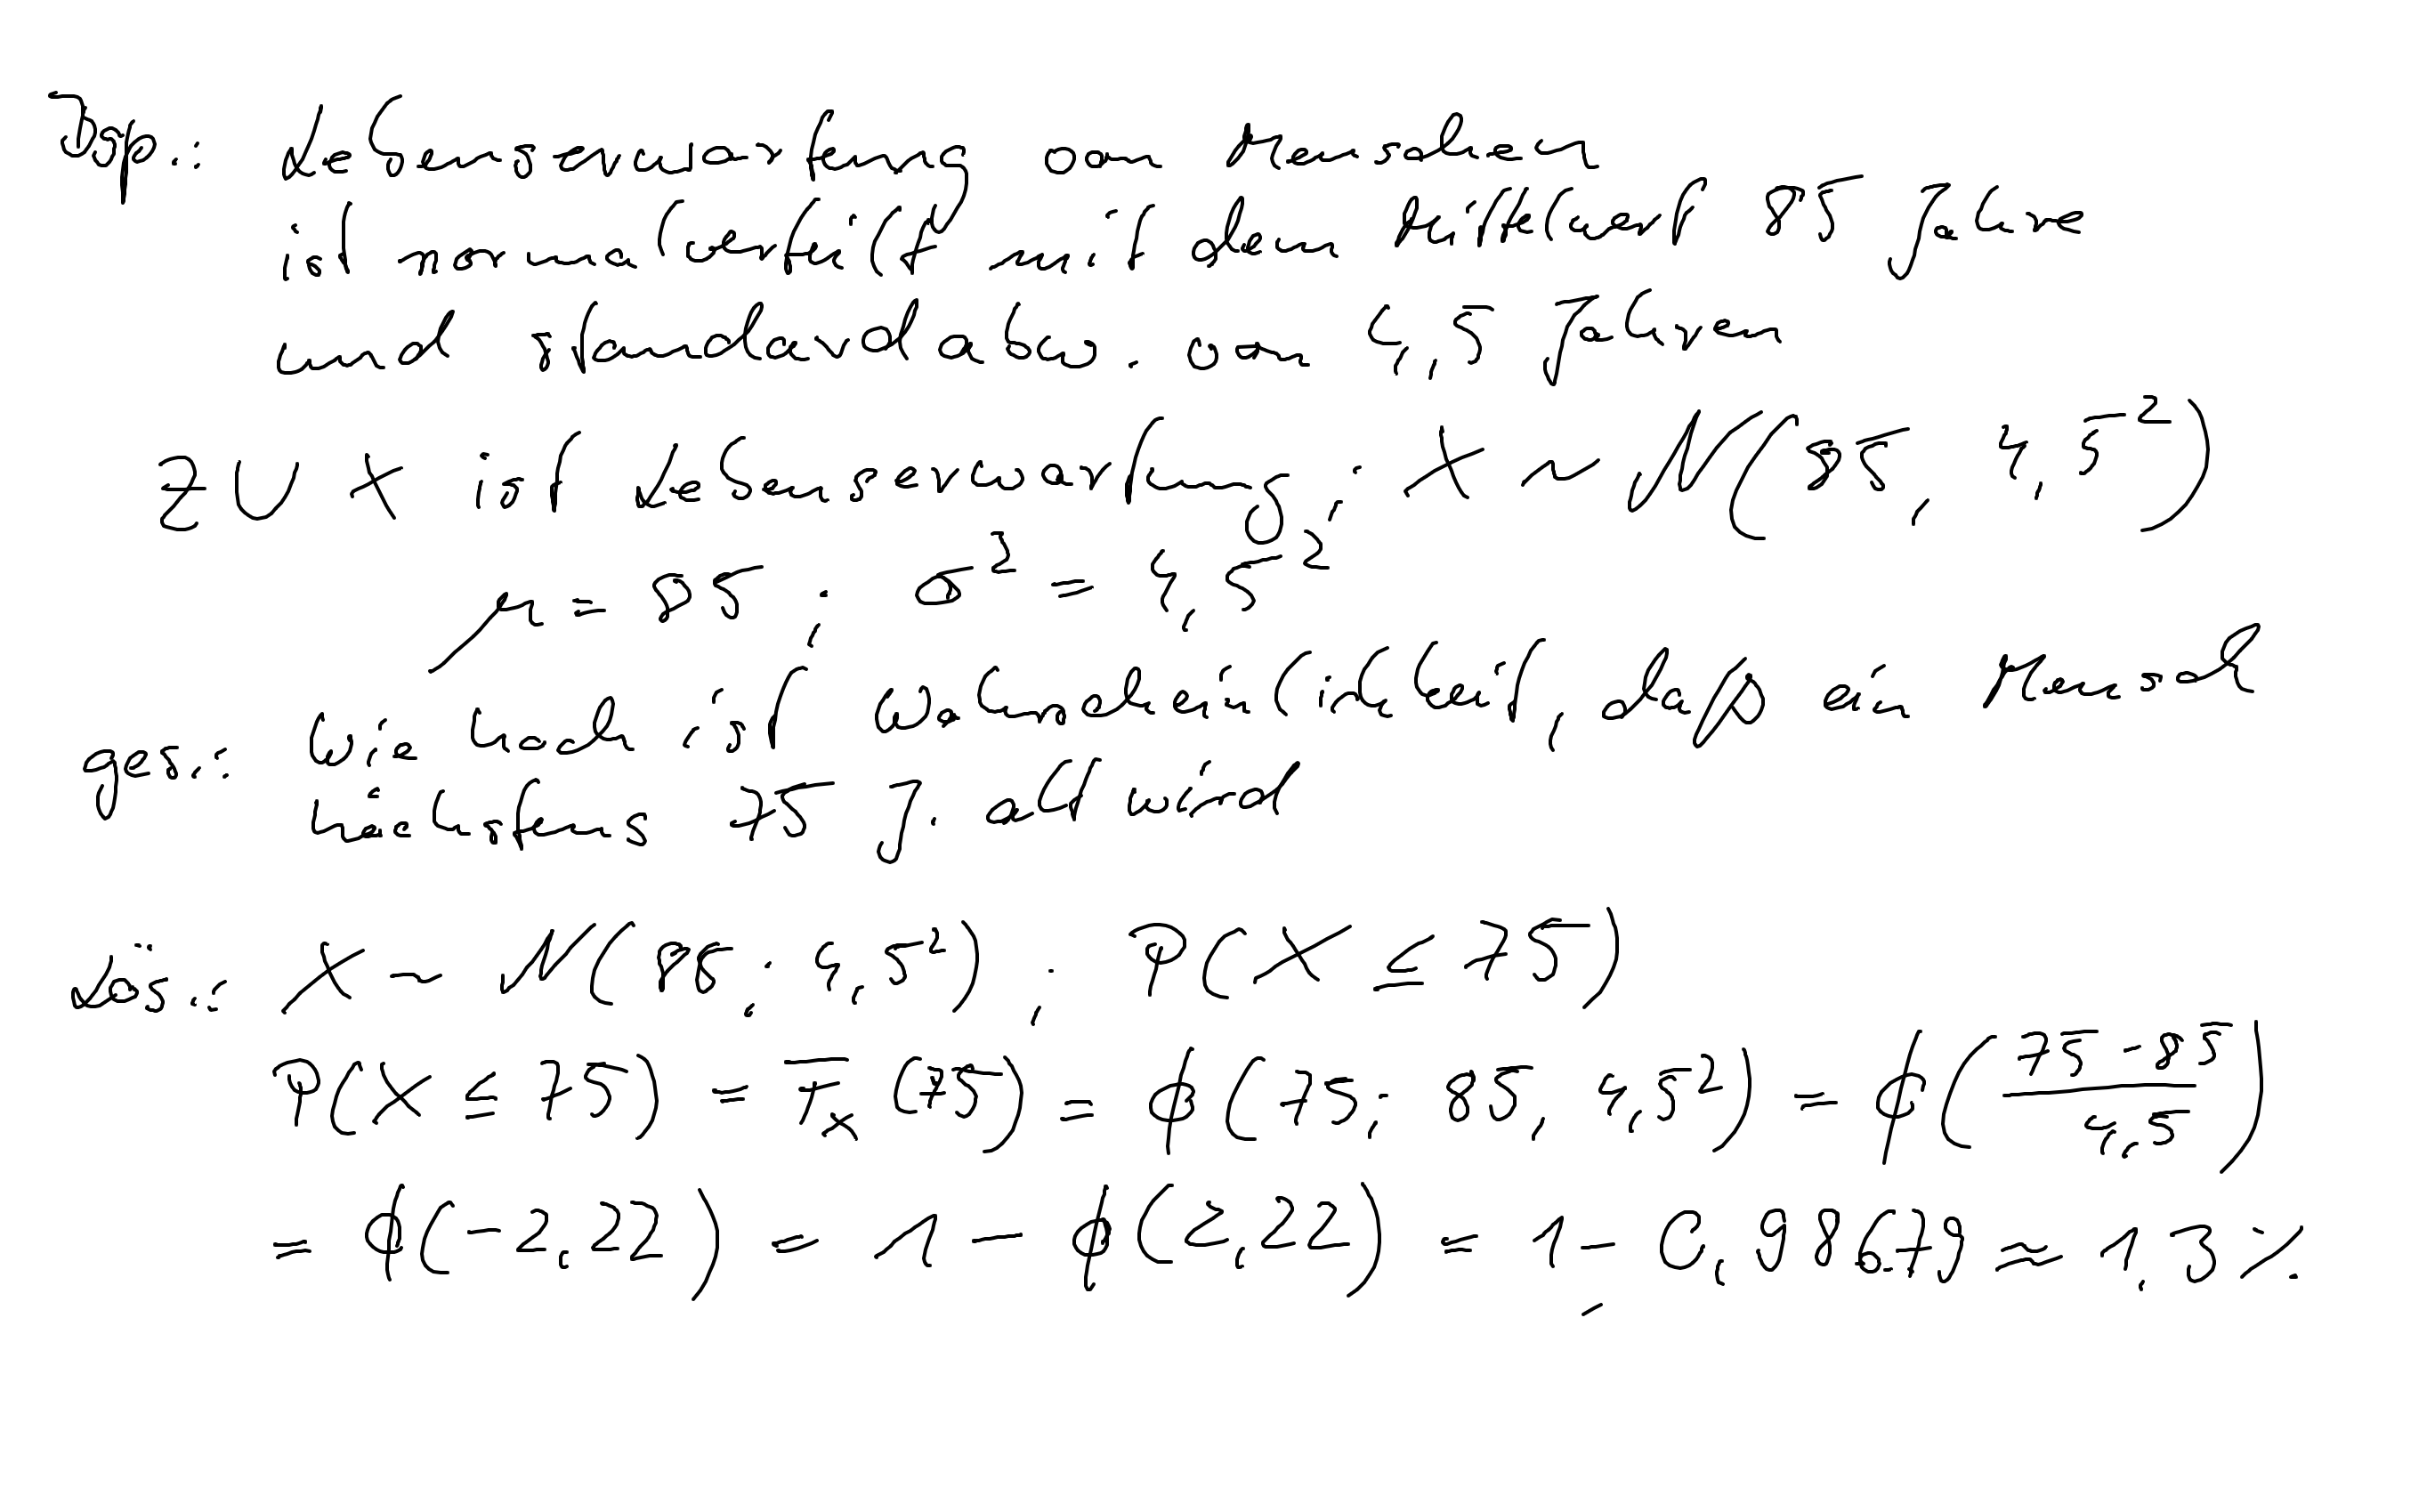 Bsp.: Lebenserwartung von Menschen
ist normalverteilt mit dem Mittelwert 85 Jahre
und Standardabw. von 4,5 Jahren
ZV X ist Lebenserwartung; X ~ N(85, 4,5²)
μ = 85 ; σ² = 4,5²
ges.: wie hoch ist Wahrscheinlichkeit, daß ein Mensch
höchstens 75 J. alt wird
Lös.: X ~ N(85; 4,5²) ; P(X ≤ 75)
P(X ≤ 75) = Fₓ(75) = ϕ(75; 85, 4,5²) = ϕ((75-85)/4,5)
= ϕ(-2,22) = 1 - ϕ(2,22) = 1 - 0,98679 = 1,3 %